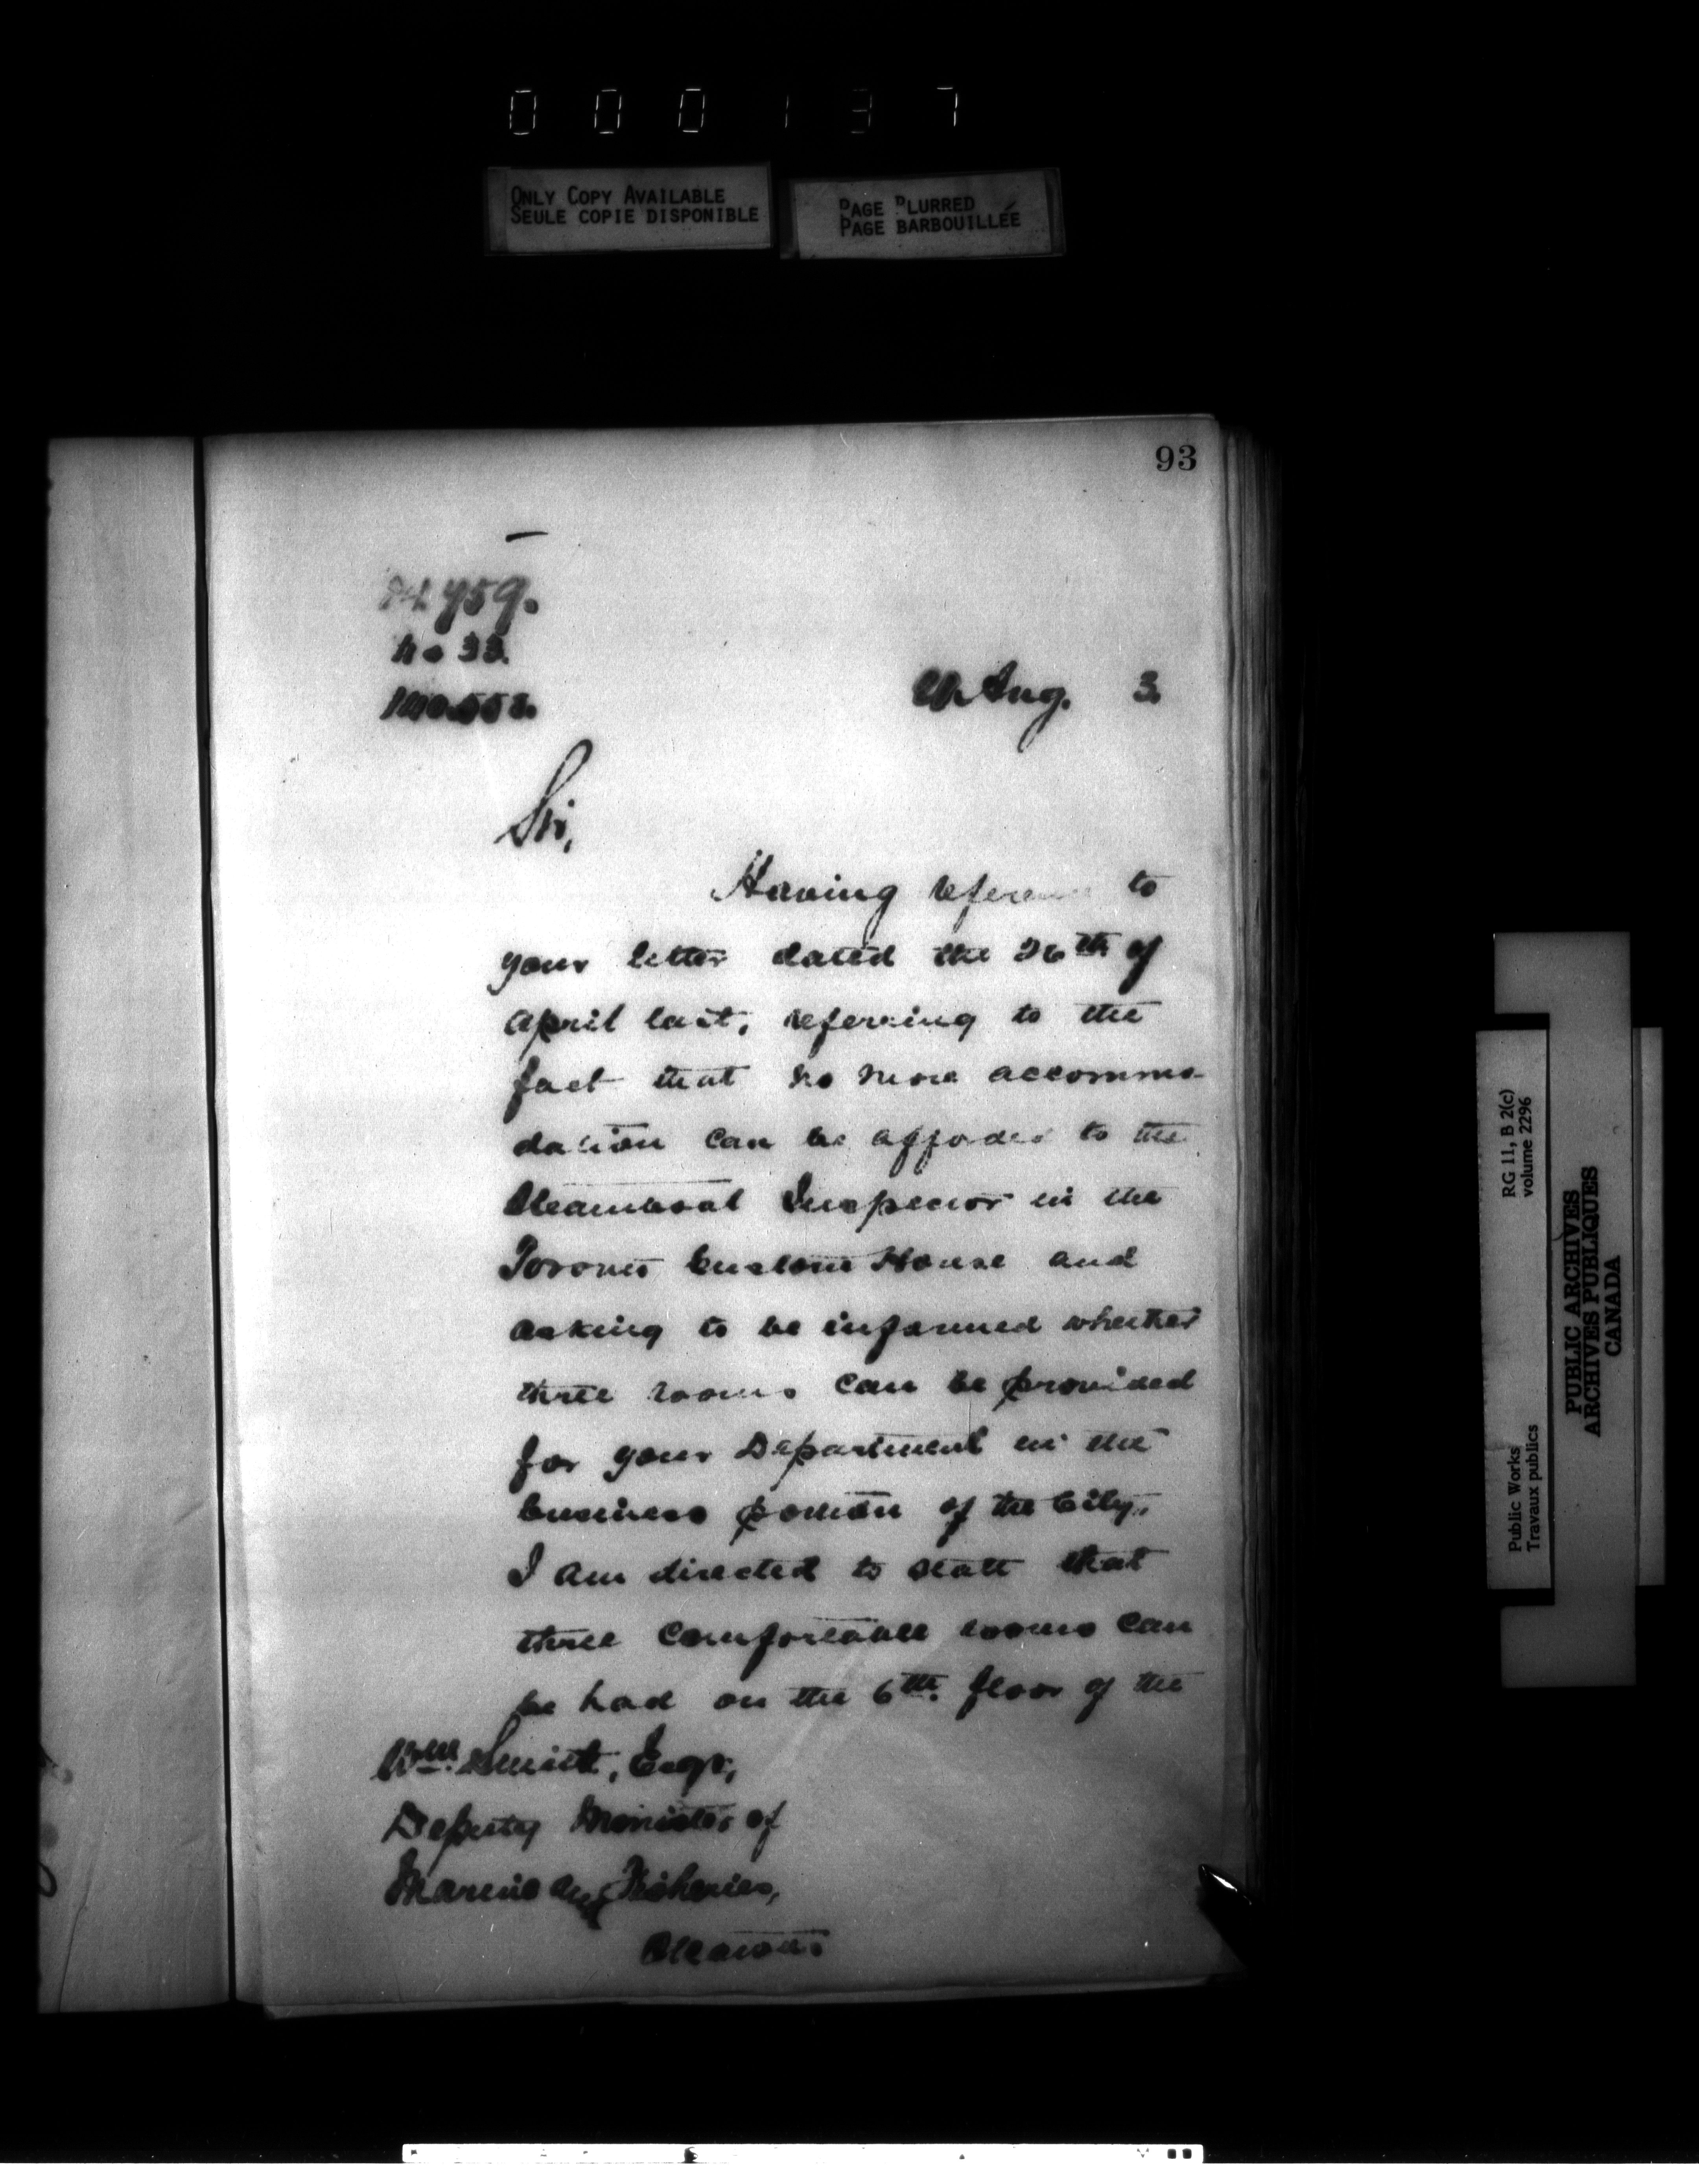 000137
ONLY COPY AVAILABLE
SEULE COPIE DISPONIBLE
PAGE BLURRED
PAGE BARBOUILLÉE
93
No 33.
Aug. 3.
Sir,
Having reference to
your letter dated the 26th of
April last, referring to the
fact that no more accommo-
dation can be afforded to the
Steamboat Inspector in the
Toronto Custom House and
asking to be informed whether
three rooms can be provided
for your Department in the
business portion of the City,
I am directed to state that
three comfortable rooms can
be had on the 6th. floor of the
Wm. Smith, Esqr,
Deputy Minister of
Marine and Fisheries,
Ottawa.
RG 11, B 2(c)
volume 2296
Public Works
Travaux publics
PUBLIC ARCHIVES
ARCHIVES PUBLIQUES
CANADA